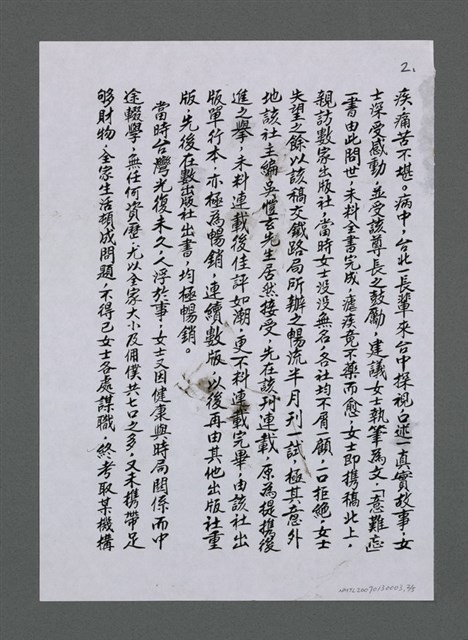 2.
疾痛苦不堪。病中，台北一長輩來台中探視口述一真實故事，女
士深受感動，並受該尊長之鼓勵，建議女士執筆為文，「意難忘
一書由此問世，未料全書完成，瘧疾竟不藥而愈，女士即携稿北上，
親訪數家出版社，當時女士没没無名，各社均不屑一顧，一口拒絶，女士
失望之餘以該稿交鐵路局所辦之暢流半月刊一試，極其意外
地該社主編吳愷玄先生居然接受，先在該刊連載，原為提携後
進之舉，未料連載後佳評如潮，更不料連載完畢，由該社出
版單行本，亦極為暢銷，連續數版，以後再由其他出版社重
版，先後在數出版社出書，均極暢銷。
當時台灣光復未久，人浮於事，女士又因健康與時局關係而中
途輟學，無任何資歷，尤以全家大小及佣僕共七口之多，又未携帶足
够財物，全家生活頓成問題，不得已女士各處謀職，終考取某機構
NMTL20070130003, 2/5